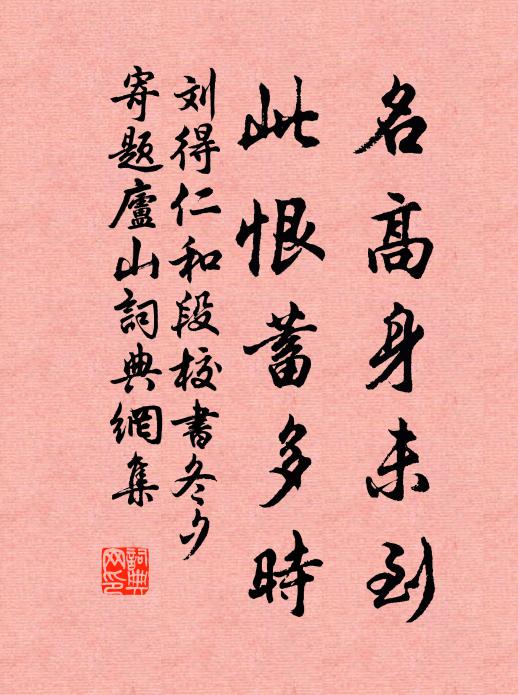 名高身未到
此恨蓄多時
刘得仁和段校書冬夕
寄題廬山詞典網集
詞典网印